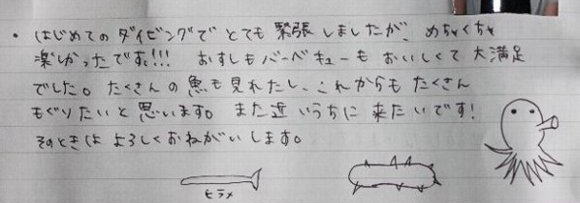 ・はじめてのダイビングでとても緊張しましたが、めちゃくちゃ
楽しかったです!!! おすしもバーベキューもおいしくて大満足
でした。たくさんの魚も見れたし、これからもたくさん
もぐりたいと思います。また近いうちに来たいです!
そのときはよろしくおねがいします。
ヒラメ